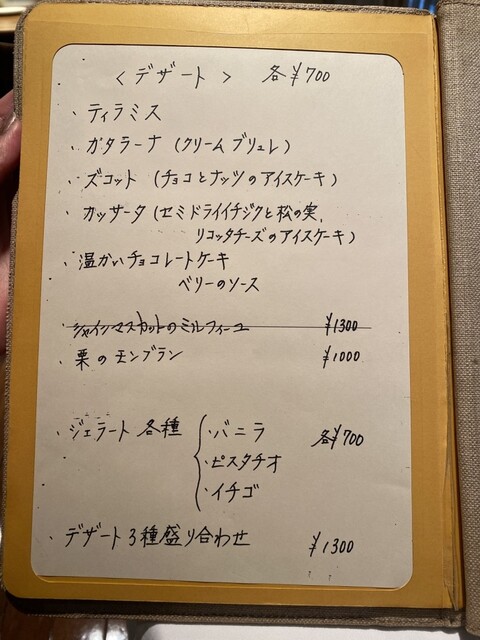 〈デザート〉 各¥700
・ティラミス
・カタラーナ（クリームブリュレ）
・ズコット（チョコとナッツのアイスケーキ）
・カッサータ（セミドライイチジクと松の実、
リコッタチーズのアイスケーキ）
・温かいチョコレートケーキ
ベリーのソース
シャインマスカットのミルフィーユ ¥1300
・栗のモンブラン ¥1000
・ジェラート各種 { ・バニラ 各¥700
・ピスタチオ
・イチゴ
・デザート3種盛り合わせ ¥1300